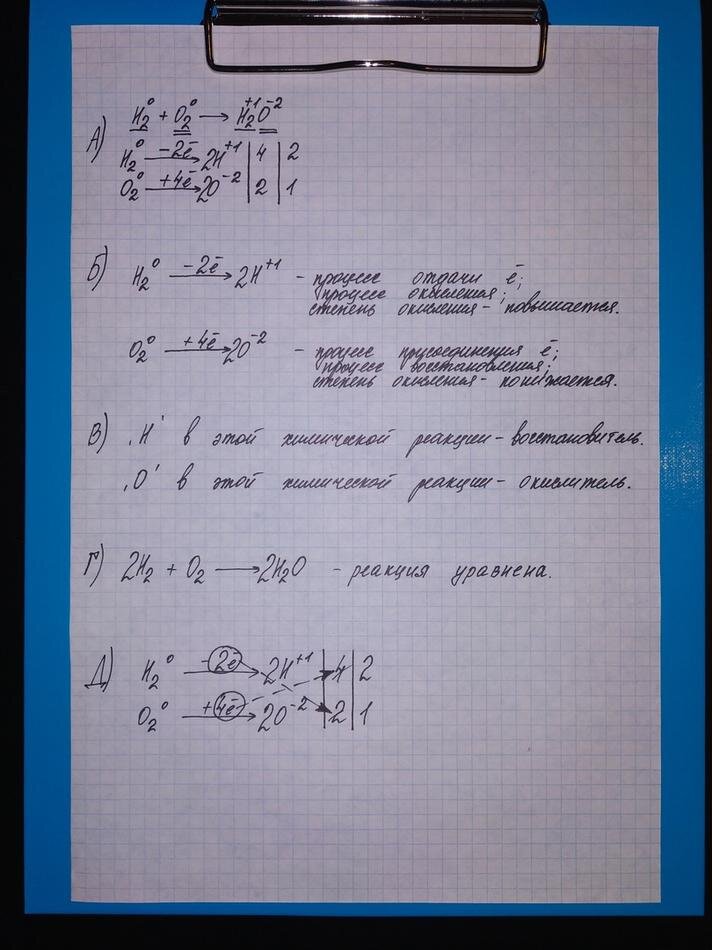 А) H₂⁰ + O₂⁰ → H₂⁺¹O⁻²
H₂⁰ –2ē → 2H⁺¹ | 4 | 2
O₂⁰ +4ē → 2O⁻² | 2 | 1
Б) H₂⁰ –2ē → 2H⁺¹ – процесс отдачи ē;
процесс окисления;
степень окисления – повышается.
O₂⁰ +4ē → 2O⁻² – процесс присоединения ē;
процесс восстановления;
степень окисления – понижается.
В) ,H' в этой химической реакции – восстановитель.
,O' в этой химической реакции – окислитель.
Г) 2H₂ + O₂ → 2H₂O – реакция уравнена.
Д) H₂⁰ –2ē → 2H⁺¹ | 4 | 2
O₂⁰ +4ē → 2O⁻² | 2 | 1